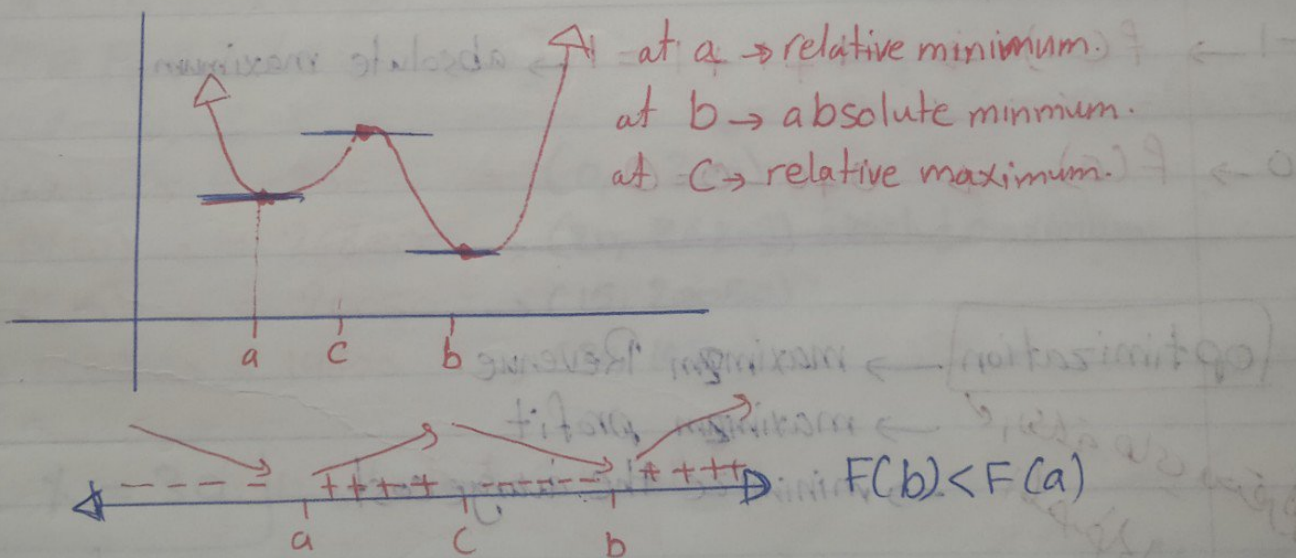 at a → relative minimum.
at b → absolute minmium.
at C → relative maximum.
a c b
- - - - - + + + + + - - - - - - - + + + +
F(b) < F(a)
a c b